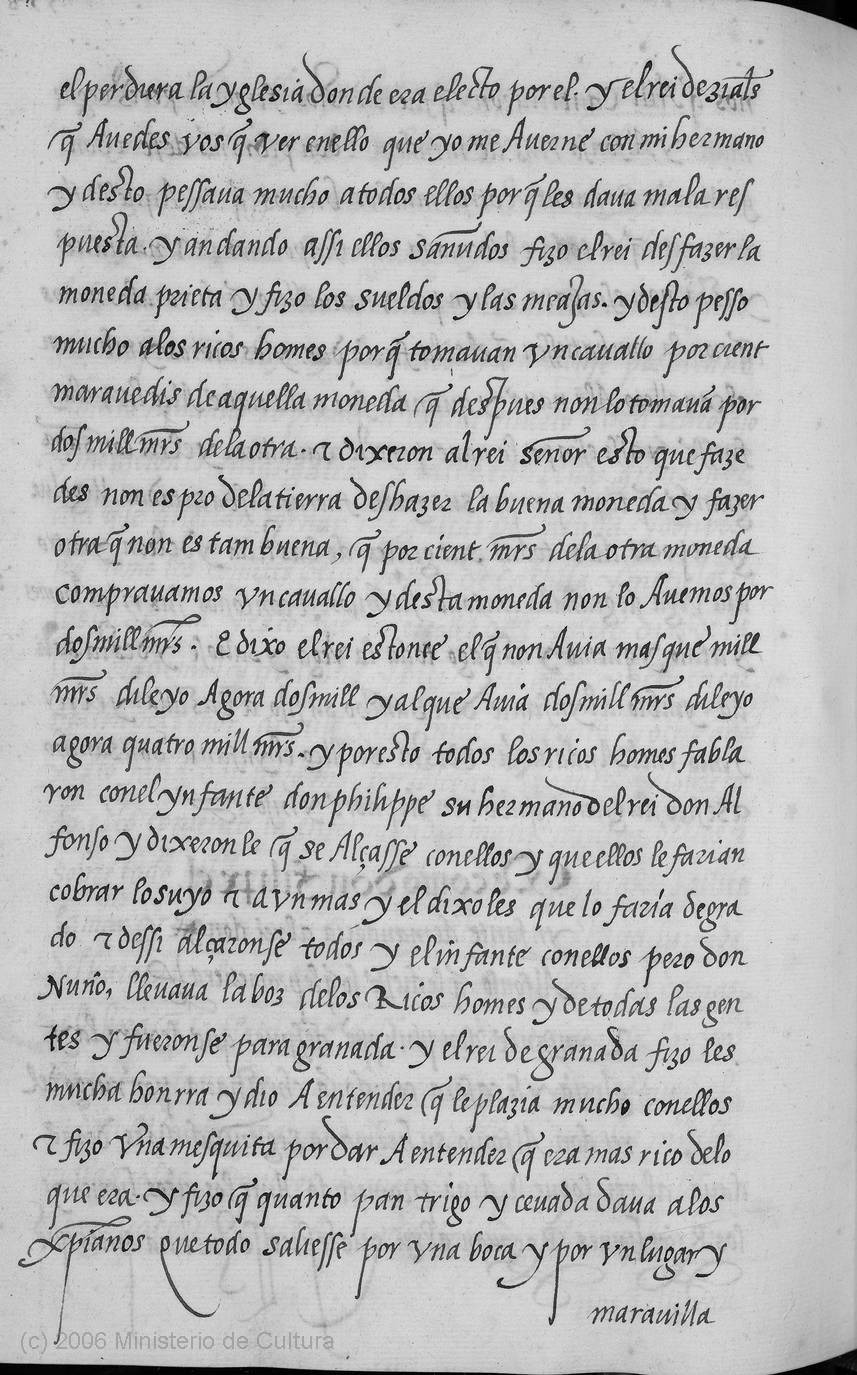 el perdiera la yglesia donde era electo por el. y el rei dezials
q̃ Auedes vos q̃ ver en ello que yo me Auerne con mi hermano
y desto pessaua mucho a todos ellos porq̃ les daua mala res
puesta. y andando assi ellos sañudos fizo el rei desfazer la
moneda prieta y fizo los sueldos y las meajas. y desto pesso
mucho a los ricos homes porq̃ tomauan vn cauallo por cient
marauedis de aquella moneda q̃ despues non lo tomauã por
dos mill mr̃s de la otra. τ dixeron al rei señor esto que faze
des non es pro de la tierra deshazer la buena moneda y fazer
otra q̃ non es tam buena, q̃ por cient mr̃s de la otra moneda
comprauamos vn cauallo y desta moneda non lo Auemos por
dos mill mr̃s. E dixo el rei estonce el q̃ non Auia mas que mill
mr̃s dile yo Agora dos mill y al que Auia dos mill mr̃s dile yo
agora quatro mill mr̃s. y por esto todos los ricos homes fabla
ron con el ynfante don philippe su hermano del rei don Al
fonso y dixeronle q̃ se Alçasse con ellos y que ellos le farian
cobrar lo suyo τ aVn mas y el dixoles que lo faria de gra
do τ dessi alçaronse todos y el infante con ellos pero don
Nuño, lleuaua la boz de los Ricos homes y de todas las gen
tes y fueronse para granada. y el rei de granada fizo les
mucha honrra y dio A entender q̃ le plazia mucho con ellos
τ fizo vna mesquita por dar A entender q̃ era mas rico de lo
que era. y fizo q̃ quanto pan trigo y ceuada daua a los
xp̃ianos que todo saliesse por vna boca y por vn lugar y
marauilla
(c) 2006 Ministerio de Cultura